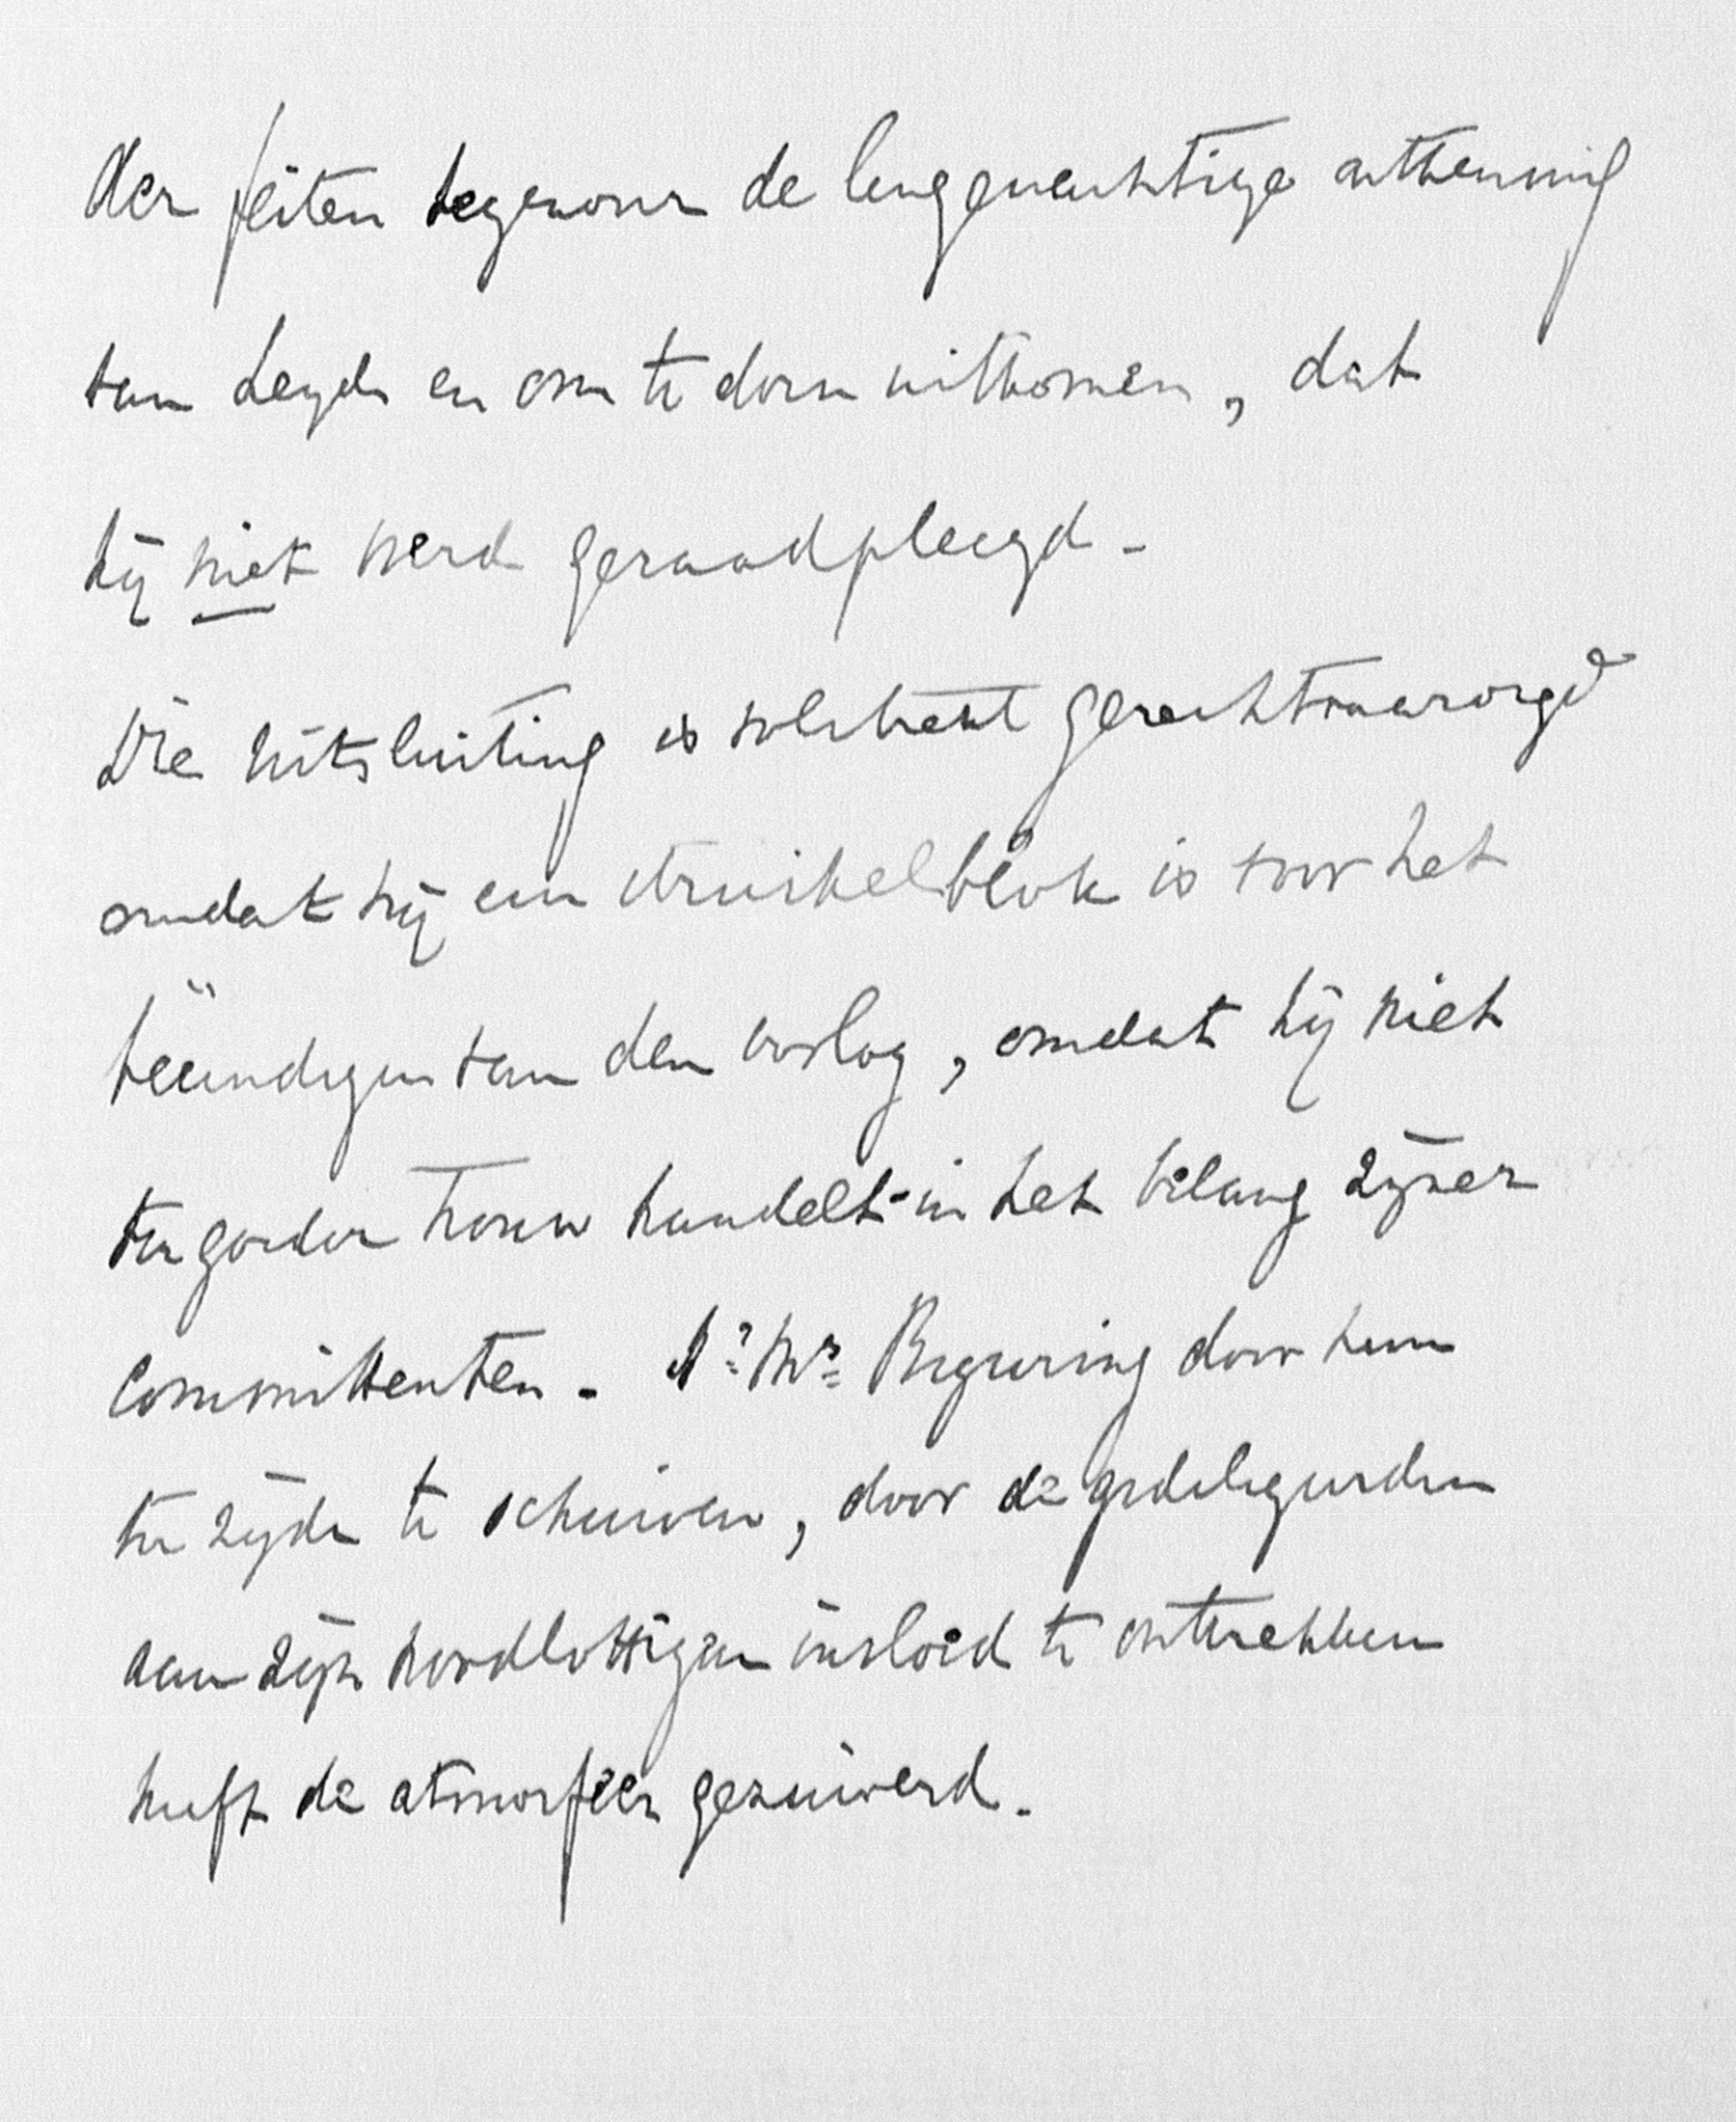 der feiten tegenover de leugenachtige ontkenning
van Leyds en om te doen uitkomen, dat
hij niet werd geraadpleegd.
Die uitsluiting is volstrekt gerechtvaardigd
omdat hij een struikelblok is voor het
beëindigen van den oorlog, omdat hij niet
ter goeder trouw handelt in het belang zijner
committenten. Dr. Mr. door hem
ter zijde te schuiven, door de gedelegeerden
aan zijn noodlottigen invloed te onttrekken
heeft de atmosfeer gezuiverd.